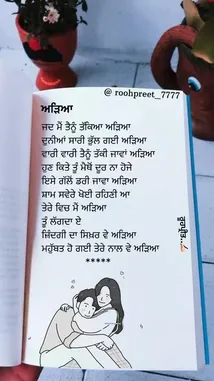 @ roohpreet_7777
ਅੜਿਆ
ਜਦ ਮੈਂ ਤੈਨੂੰ ਤੱਕਿਆ ਅੜਿਆ
ਦੁਨੀਆਂ ਸਾਰੀ ਭੁੱਲ ਗਈ ਅੜਿਆ
ਵਾਰੀ ਵਾਰੀ ਤੈਨੂੰ ਤੱਕੀ ਜਾਵਾਂ ਅੜਿਆ
ਹੁਣ ਕਿਤੇ ਤੂੰ ਮੈਥੋਂ ਦੂਰ ਨਾ ਹੋਜੇ
ਇਸੇ ਗੱਲੋਂ ਡਰੀ ਜਾਵਾ ਅੜਿਆ
ਸ਼ਾਮ ਸਵੇਰੇ ਖੋਈ ਰਹਿਣੀ ਆ
ਤੇਰੇ ਵਿਚ ਮੈਂ ਅੜਿਆ
ਤੂੰ ਲੱਗਦਾ ਏ
ਜ਼ਿੰਦਗੀ ਦਾ ਸਿਖ਼ਰ ਵੇ ਅੜਿਆ
ਮਹੁੱਬਤ ਹੋ ਗਈ ਤੇਰੇ ਨਾਲ ਵੇ ਅੜਿਆ
*****